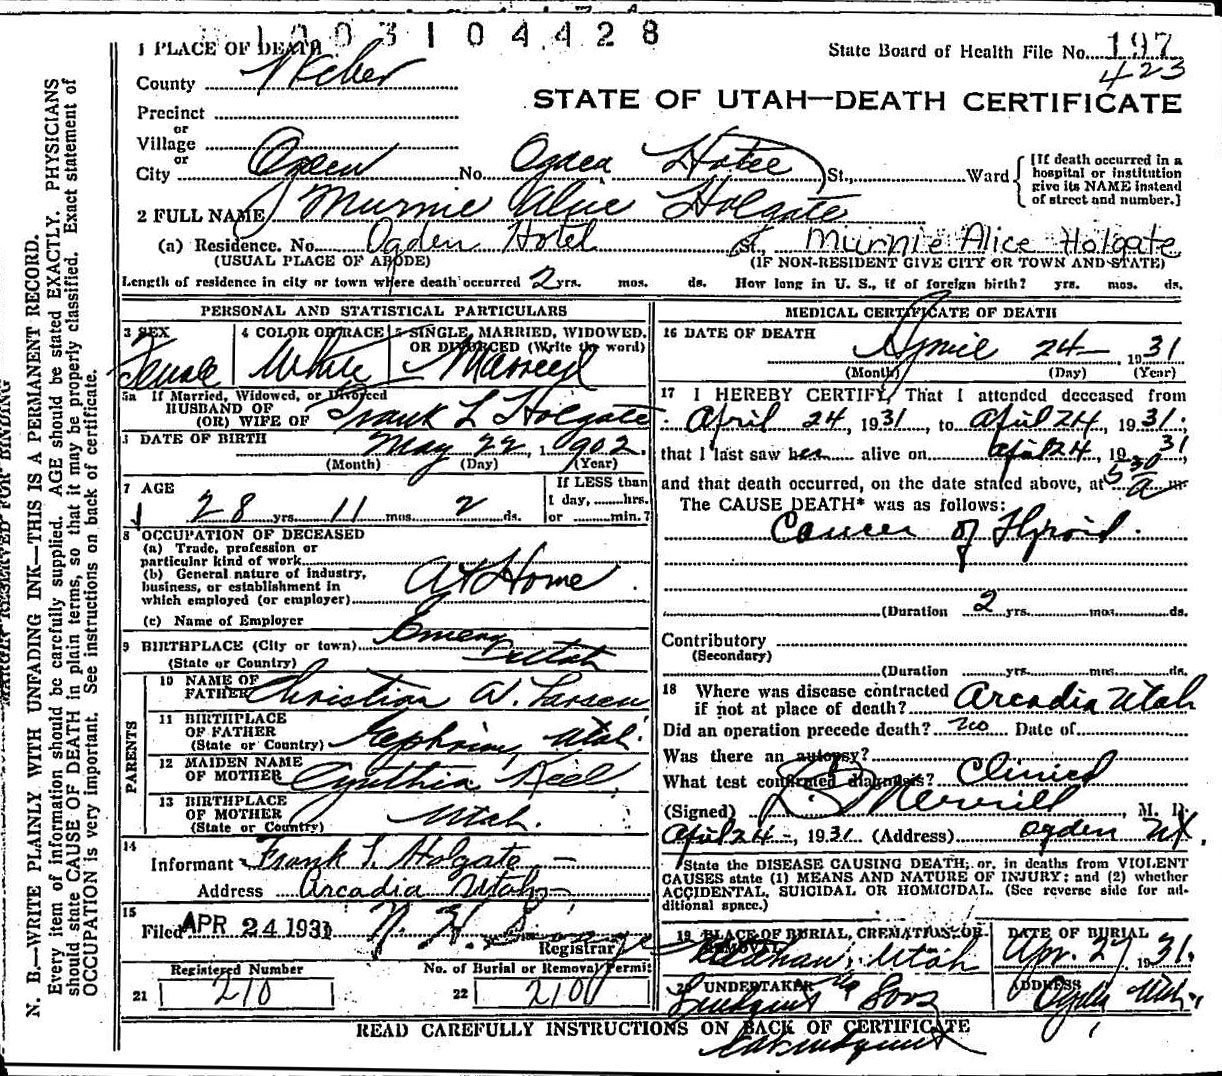 1003104428
1 PLACE OF DEATH
State Board of Health File No. 197
423
County Weber
STATE OF UTAH—DEATH CERTIFICATE
Precinct
or
Village
or
City Ogden No. Ogden Hotel St., Ward
[If death occurred in a hospital or institution give its NAME instead of street and number.]
2 FULL NAME Murnie Alice Holgate
(a) Residence. No. Ogden Hotel St., Murnie Alice Holgate
(USUAL PLACE OF ABODE) (IF NON-RESIDENT GIVE CITY OR TOWN AND STATE)
Length of residence in city or town where death occurred 2 yrs. mos. ds. How long in U. S., if of foreign birth? yrs. mos. ds.
PERSONAL AND STATISTICAL PARTICULARS
3 SEX Female
4 COLOR OR RACE White
5 SINGLE, MARRIED, WIDOWED, OR DIVORCED (Write the word) Married
5a If Married, Widowed, or Divorced
HUSBAND OF
(OR) WIFE OF Frank L Holgate
DATE OF BIRTH May 22, 1902.
(Month) (Day) (Year)
7 AGE
28 yrs. 11 mos. 2 ds.
If LESS than
1 day, hrs.
or min.?
8 OCCUPATION OF DECEASED
(a) Trade, profession or
particular kind of work
(b) General nature of industry,
business, or establishment in
which employed (or employer) At Home
(c) Name of Employer
9 BIRTHPLACE (City or town) Emery
(State or Country) Utah
PARENTS
10 NAME OF
FATHER Christian W. Larsen
11 BIRTHPLACE
OF FATHER
(State or Country) Ephriam, Utah.
12 MAIDEN NAME
OF MOTHER Cynthia Keel
13 BIRTHPLACE
OF MOTHER
(State or Country) Utah.
14
Informant Frank L. Holgate
Address Arcadia Utah
15
Filed APR 24 1931 N. H.
Registrar
Registered Number
21 210
No. of Burial or Removal Permit
22 210
MEDICAL CERTIFICATE OF DEATH
16 DATE OF DEATH
April 24 1931
(Month) (Day) (Year)
17 I HEREBY CERTIFY, That I attended deceased from
April 24, 1931, to April 24, 1931;
that I last saw her alive on April 24, 1931,
and that death occurred, on the date stated above, at 530 a m
The CAUSE DEATH* was as follows:
Cancer of Thyroid.
(Duration 2 yrs. mos. ds.
Contributory
(Secondary)
(Duration yrs. mos. ds.
18 Where was disease contracted
if not at place of death? Arcadia Utah
Did an operation precede death? no Date of
Was there an autopsy?
What test confirmed diagnosis? Clinical
(Signed) Merrill, M. D.
April 24, 1931 (Address) Ogden Ut.
*State the DISEASE CAUSING DEATH, or, in deaths from VIOLENT
CAUSES state (1) MEANS AND NATURE OF INJURY; and (2) whether
ACCIDENTAL, SUICIDAL OR HOMICIDAL. (See reverse side for ad-
ditional space.)
19 PLACE OF BURIAL, CREMATION, OR
REMOVAL Utah
DATE OF BURIAL
Apr. 27 1931.
20 UNDERTAKER
Lindquist & Sons
ADDRESS
Ogden Utah
READ CAREFULLY INSTRUCTIONS ON BACK OF CERTIFICATE
MARGIN RESERVED FOR BINDING
N. B.—WRITE PLAINLY WITH UNFADING INK—THIS IS A PERMANENT RECORD.
Every item of information should be carefully supplied. AGE should be stated EXACTLY. PHYSICIANS
should state CAUSE OF DEATH in plain terms, so that it may be properly classified. Exact statement of
OCCUPATION is very important. See instructions on back of certificate.